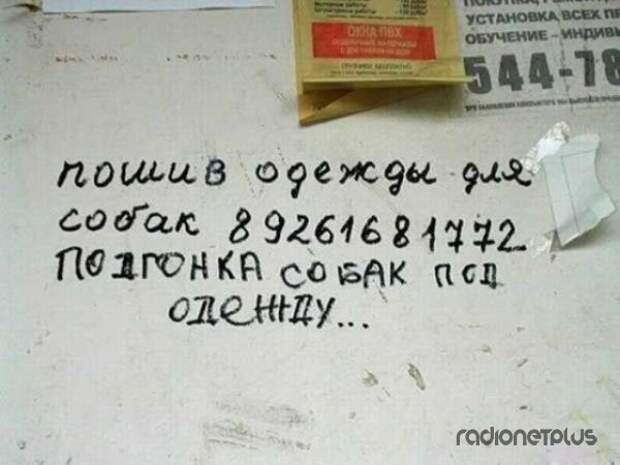 ОКНА ПВХ
УСТАНОВКА ВСЕХ ПР
ОБУЧЕНИЕ - ИНДИВИ
544-78
пошив одежды для
собак 89261681772
ПОДГОНКА СОБАК ПОД
ОДЕЖДУ...
radionetplus